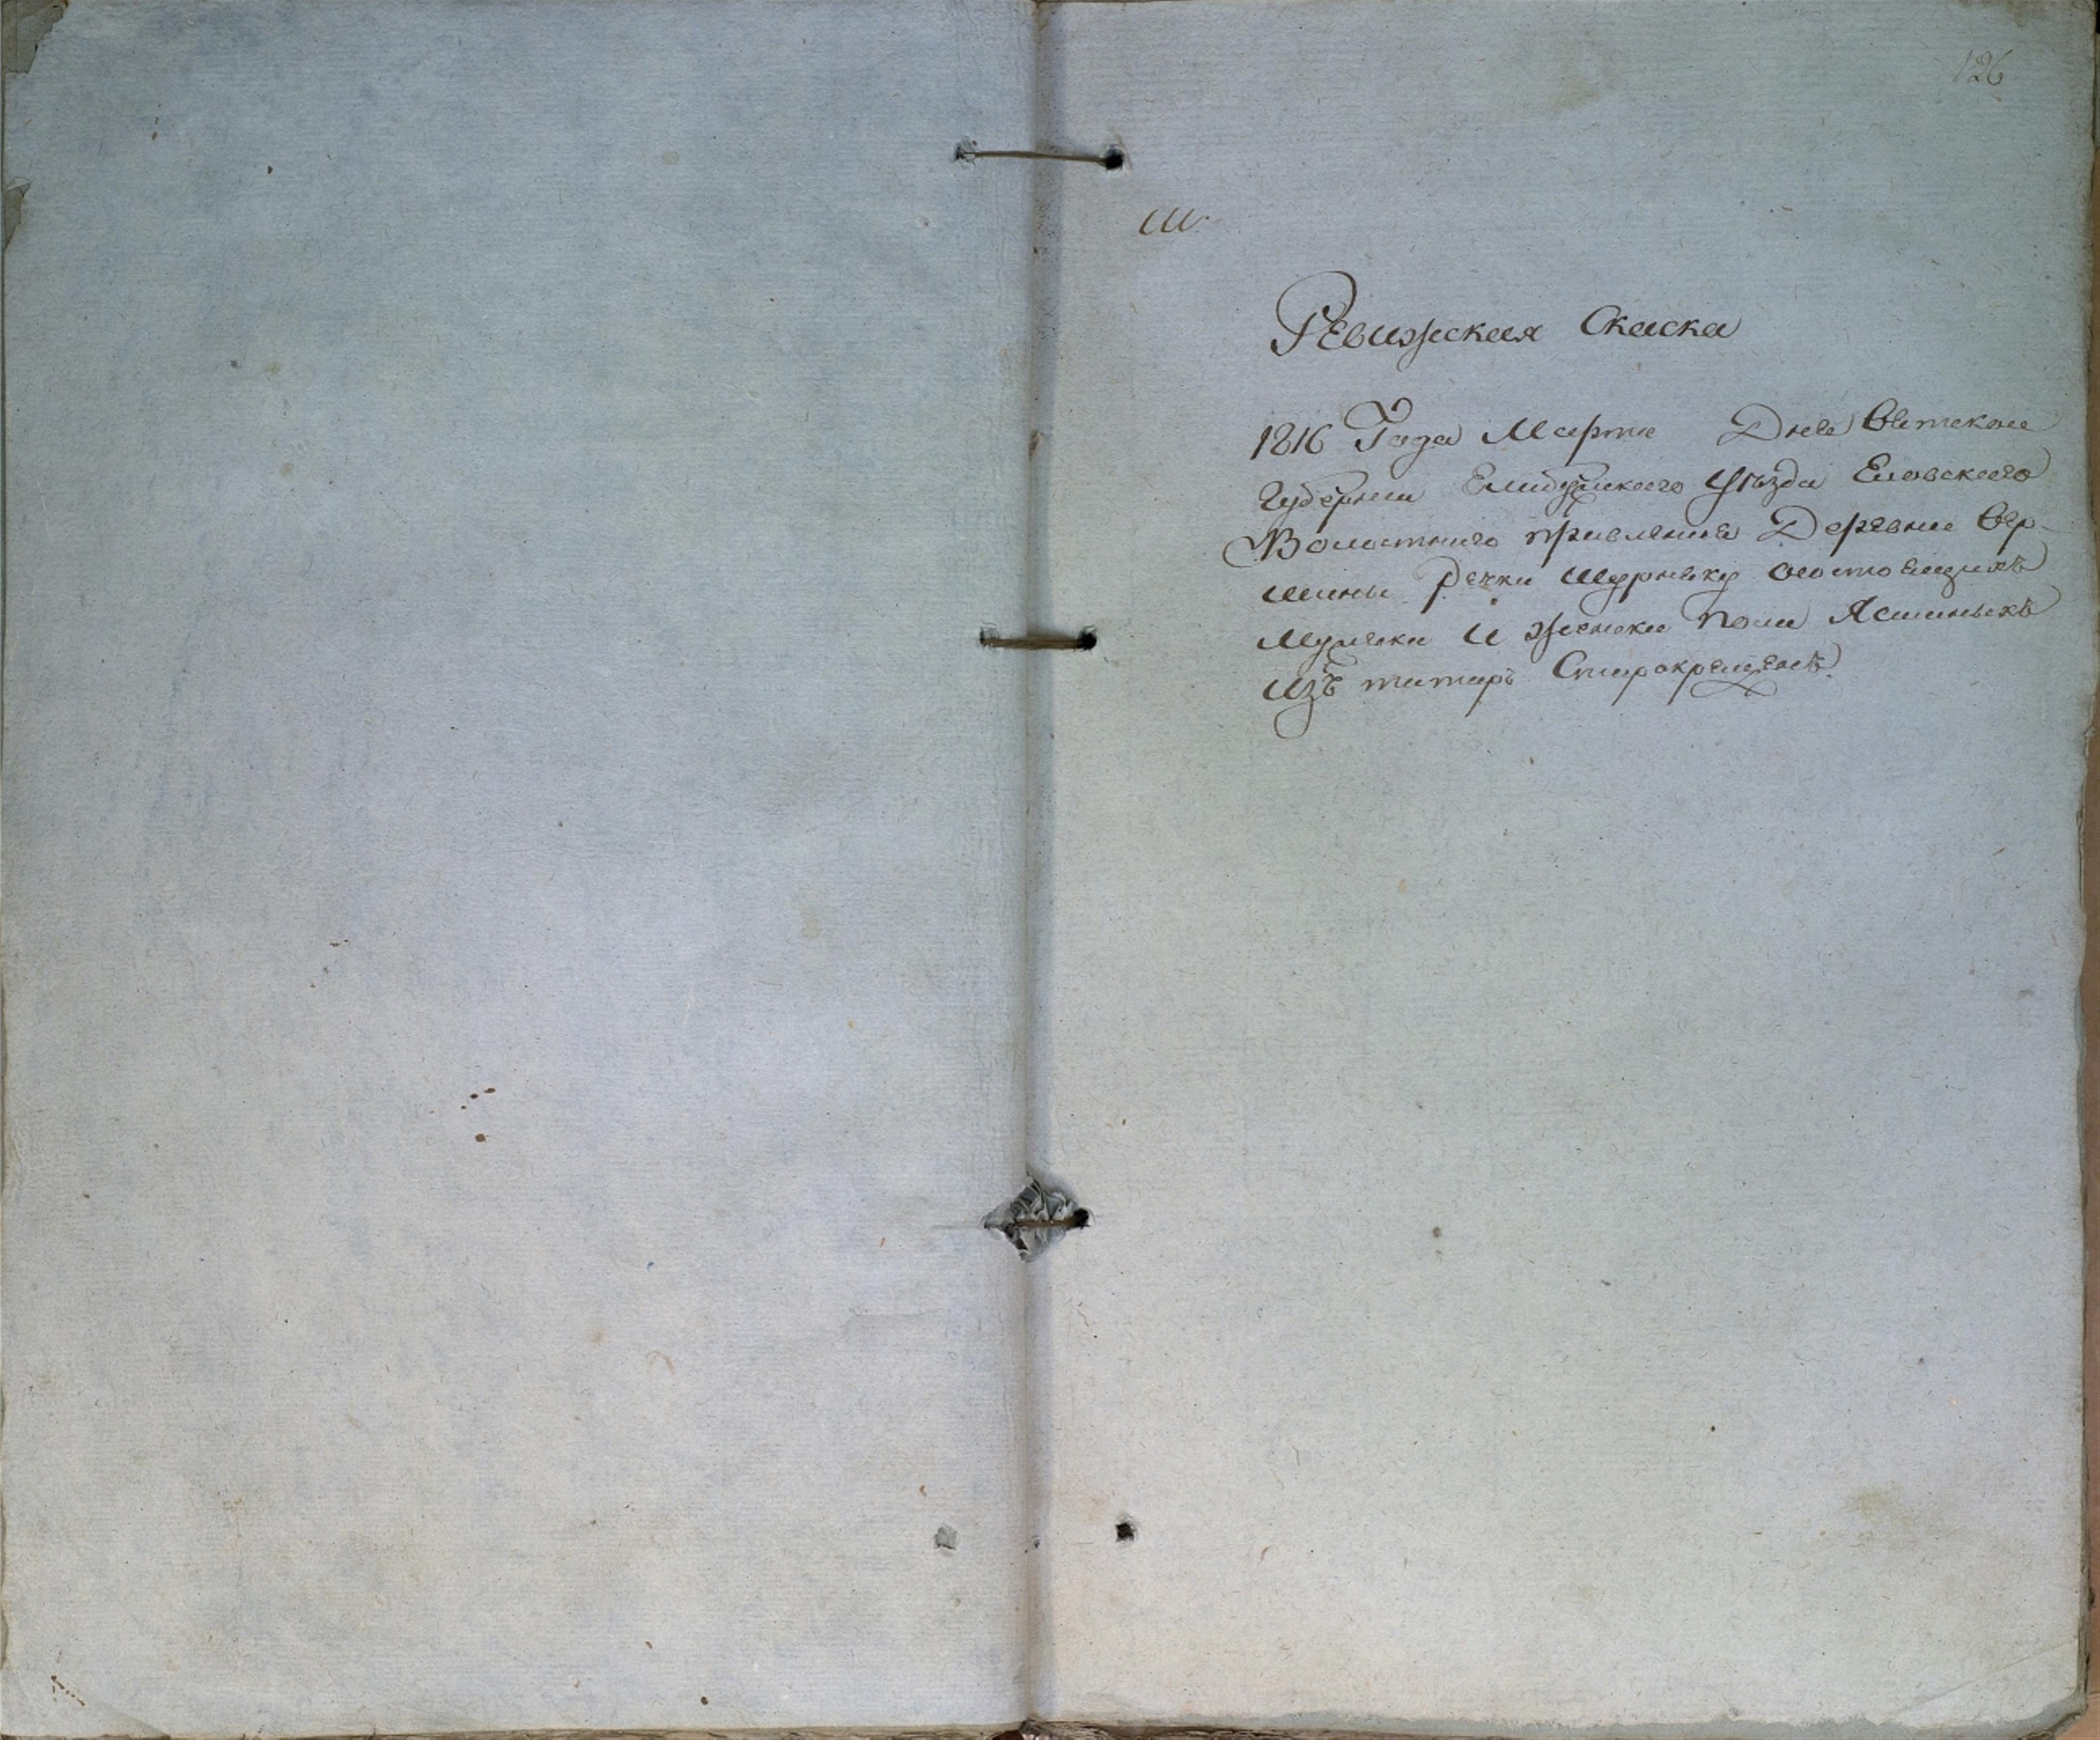 126
Ш.
Ревижская Скаска
1816 Года Марта Дня Вятской
Губернии Елабужского Уѣзда Еловского
Волостнаго правления Деревни Вер-
шины Речки Шурняку состоящихъ
Мужска И женска пола Ясашныхъ
Изъ татаръ Старокрещенъ.